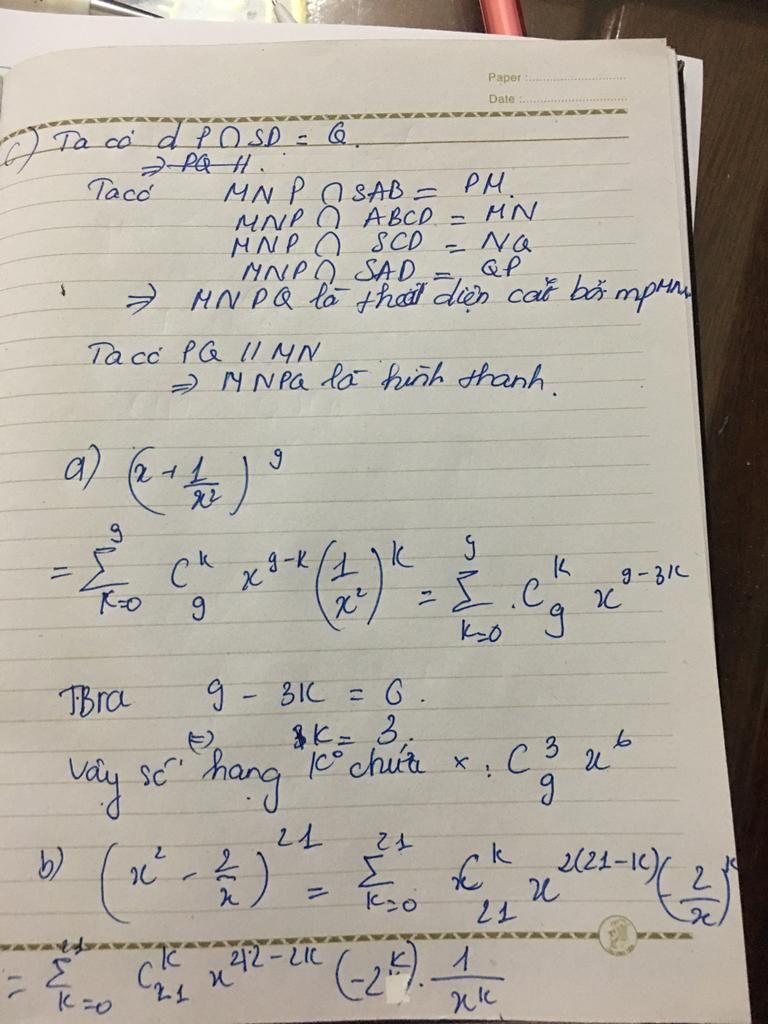 Paper :
Date :
c) Ta có d P ∩ SD = Q.
⇒ PQ //.
Ta có MNP ∩ SAB = PM.
MNP ∩ ABCD = MN
MNP ∩ SCD = NQ
MNP ∩ SAD = QP
⇒ MNPQ là thiết diện cắt bởi mp MN
Ta có PQ // MN
⇒ MNPQ là hình thanh.
a) (x + 1/x²)^9
= Σ_{K=0}^{9} C_9^K x^{9-K} (1/x²)^K = Σ_{K=0}^{9} . C_9^K x^{9-3K}
TBra 9 - 3K = 0.
⇔ K = 3.
Vậy số hạng K° chứa x : C_9^3 x^6
b) (x² - 2/x)^{21} = Σ_{K=0}^{21} C_{21}^K x^{2(21-K)} (-2/x)^K
= Σ_{K=0}^{21} C_{21}^K x^{42-2K} (-2^K) . 1/x^K